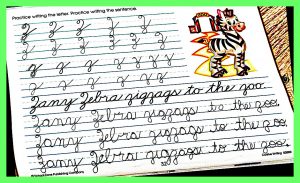 Practice writing the letter. Practice writing the sentence.
Z Z Z Z Z
Z Z Z Z Z Z Z
z z z z z z z z
z z z z z z z z
Zany Zebra zigzags to the zoo.
Zany Zebra zigzags to the zoo.
Zany Zebra zigzags to the zoo.
Zany Zebra zigzags to the zoo.